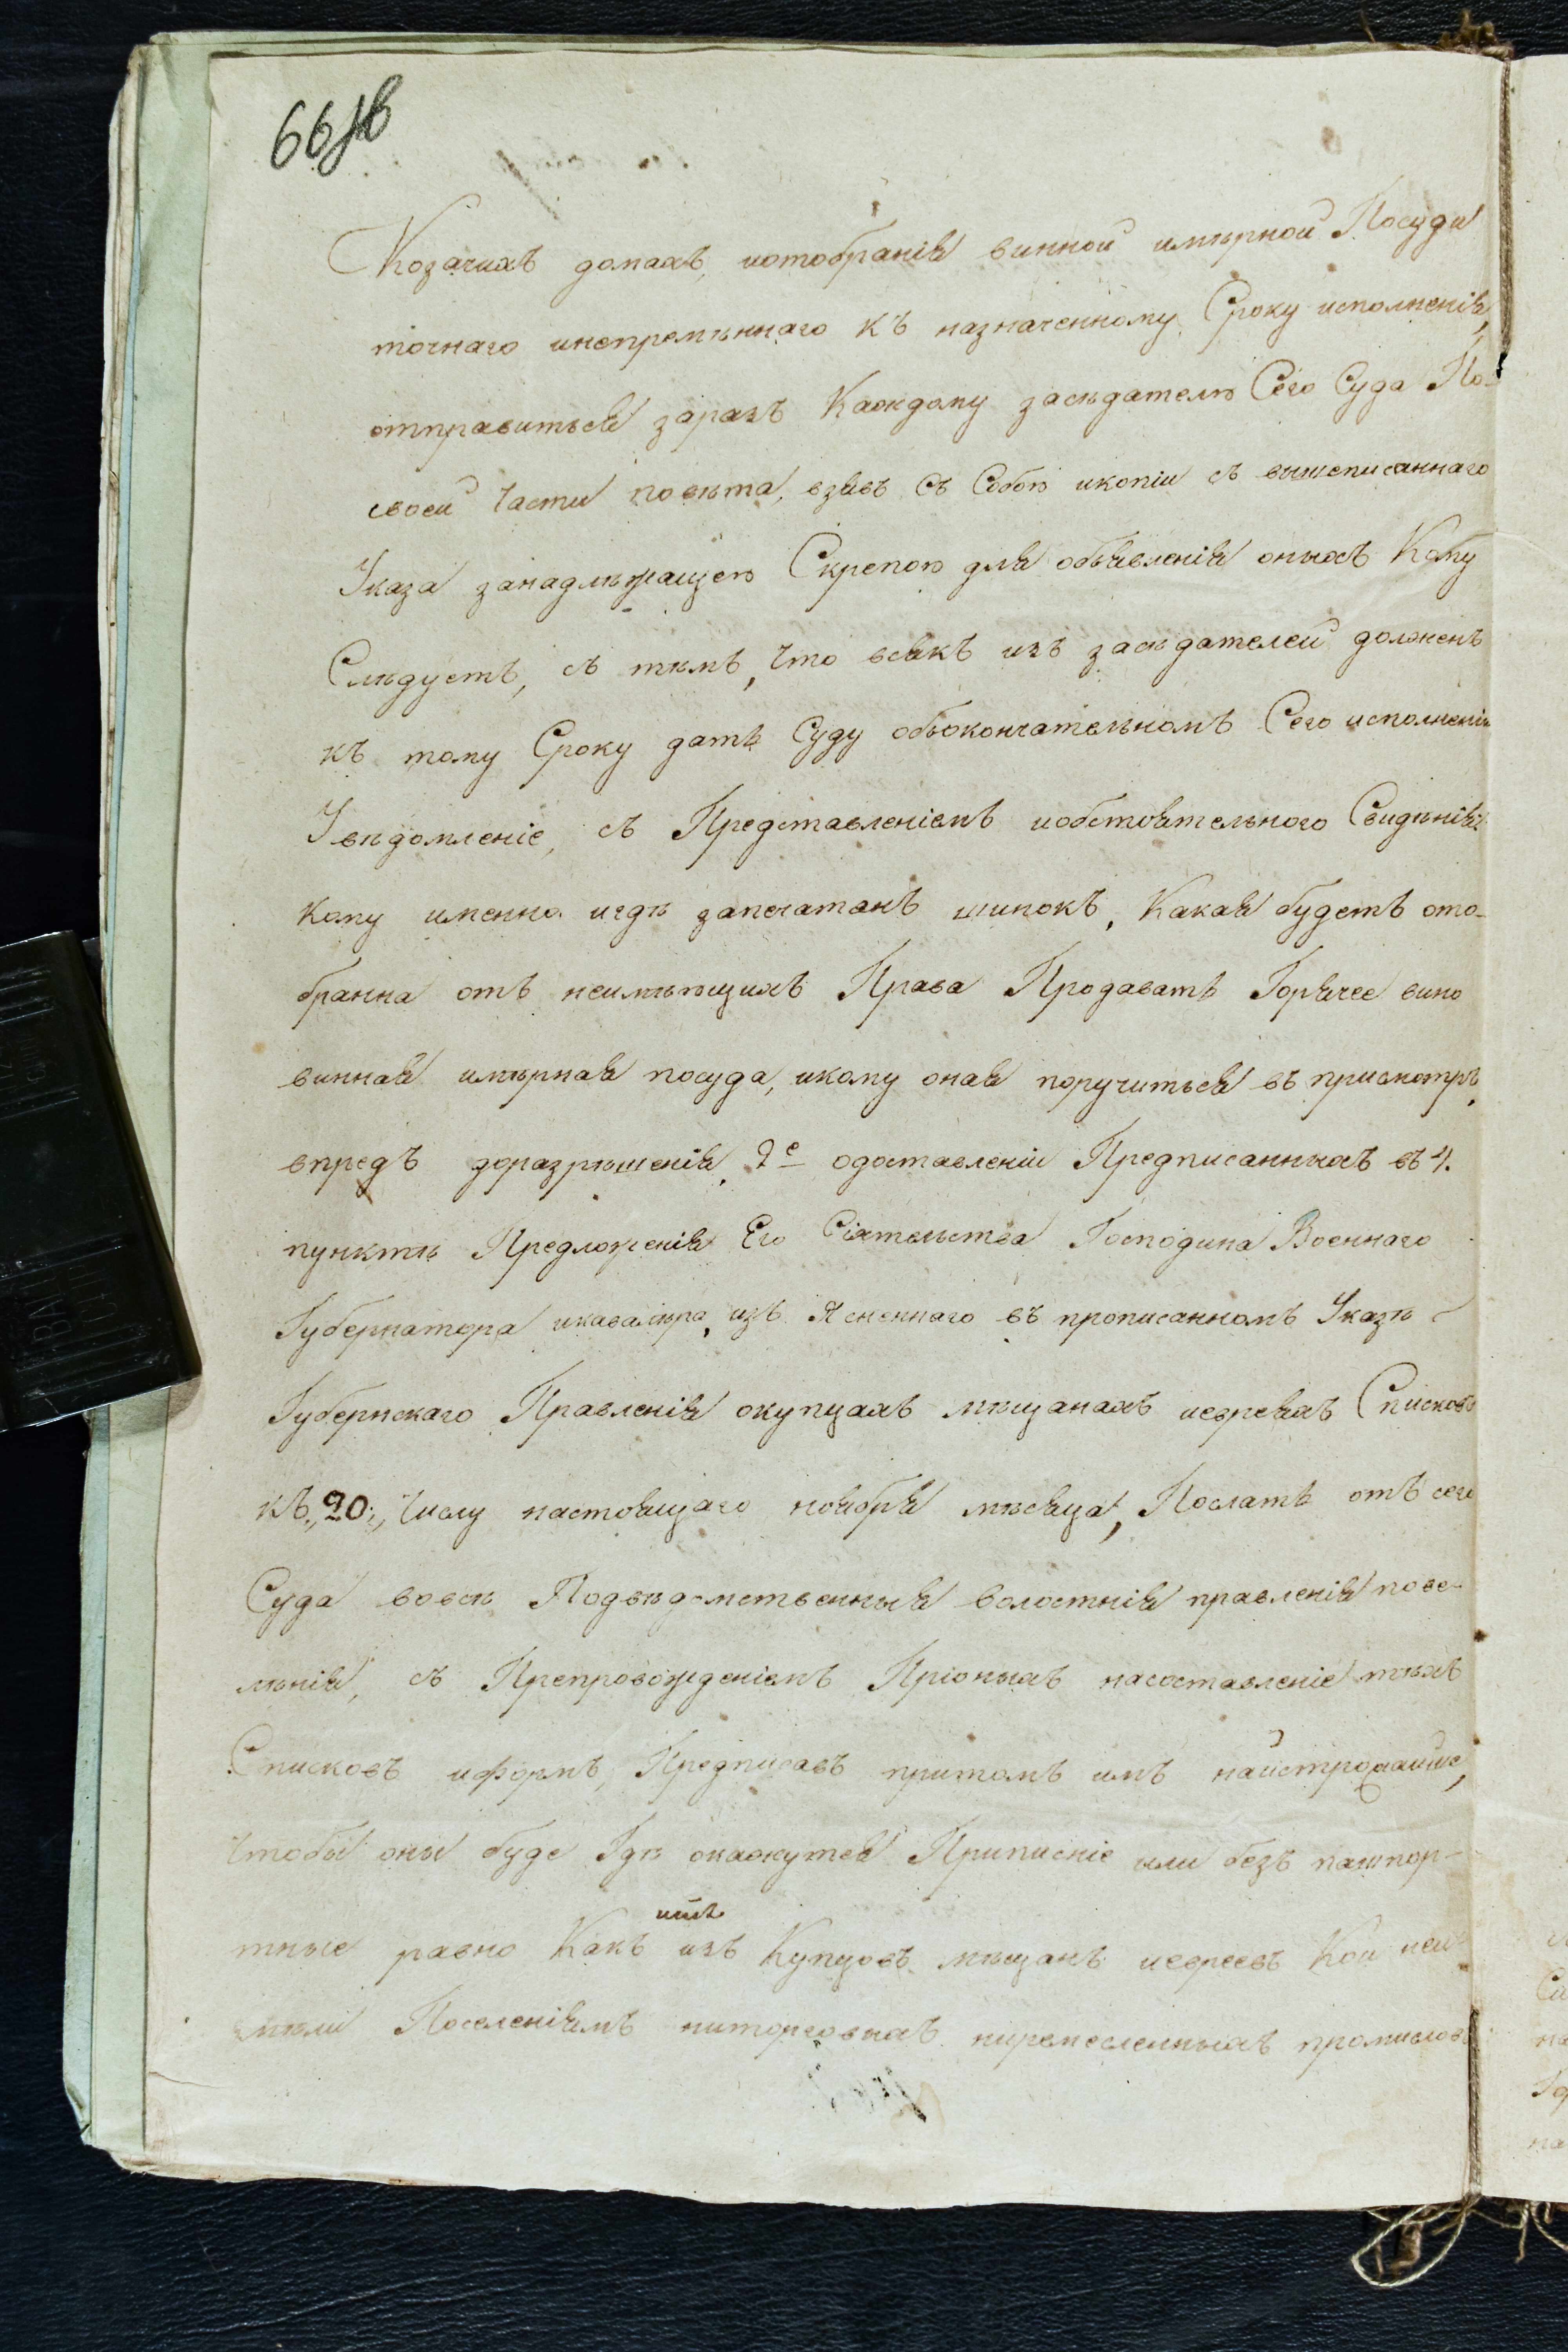 66зв
Козачихъ домахъ, иотобранія винной имѣрной Посуди
точнаго инепремѣннаго къ назначенному Сроку исполненія,
отправиться заразъ Каждому засѣдателю Сего Суда По-
своей части повѣта, взявъ съ Собою икопіи съ вышеписаннаго
Указа занадлѣжащею Скрепою для объявленія оныхъ Кому
Слѣдуетъ, съ тѣмъ, что всякъ изъ засѣдателей долженъ
къ тому Сроку дать Суду обьокончательномъ Сего исполненіи
Увѣдомленіе, съ Представленіемъ иобстоятельного Свидѣнія
кому именно игдѣ запечатанъ шинокъ, Какая будетъ ото-
бранна отъ неимѣющихъ Права Продавать Горячее вино
винная имѣрная посуда, икому оная поручиться въ присмотръ,
впредъ доразрѣшенія, 2е одоставленіи Предписанныхъ въ 4.
пунктѣ Предложенія Его Сіятельства Господина Военнаго
Губернатора икавалѣра, изъ Ясненнаго въ прописанномъ Указѣ
Губернскаго Правленія окупцахъ мѣщанахъ иевреяхъ Списковъ
къ „20„ числу настоящаго ноября мѣсяца, Послать отъ сего
Суда вовсѣ Подвѣдомственныя волостнія правленія пове-
лѣнія, съ Препровожденіемъ Пріоныхъ насоставленіе тѣхъ
Списковъ иформъ, Предписавъ притомъ имъ найстрожайше,
чтобы оны буде Гдѣ окажутся Приписніе или безъ пашпор-
тные равно Какъ изъ Купцовъ мѣщанъ иевреевъ Кои неи-
мѣли Поселеніямъ ниторговыхъ ниремесленныхъ промислов